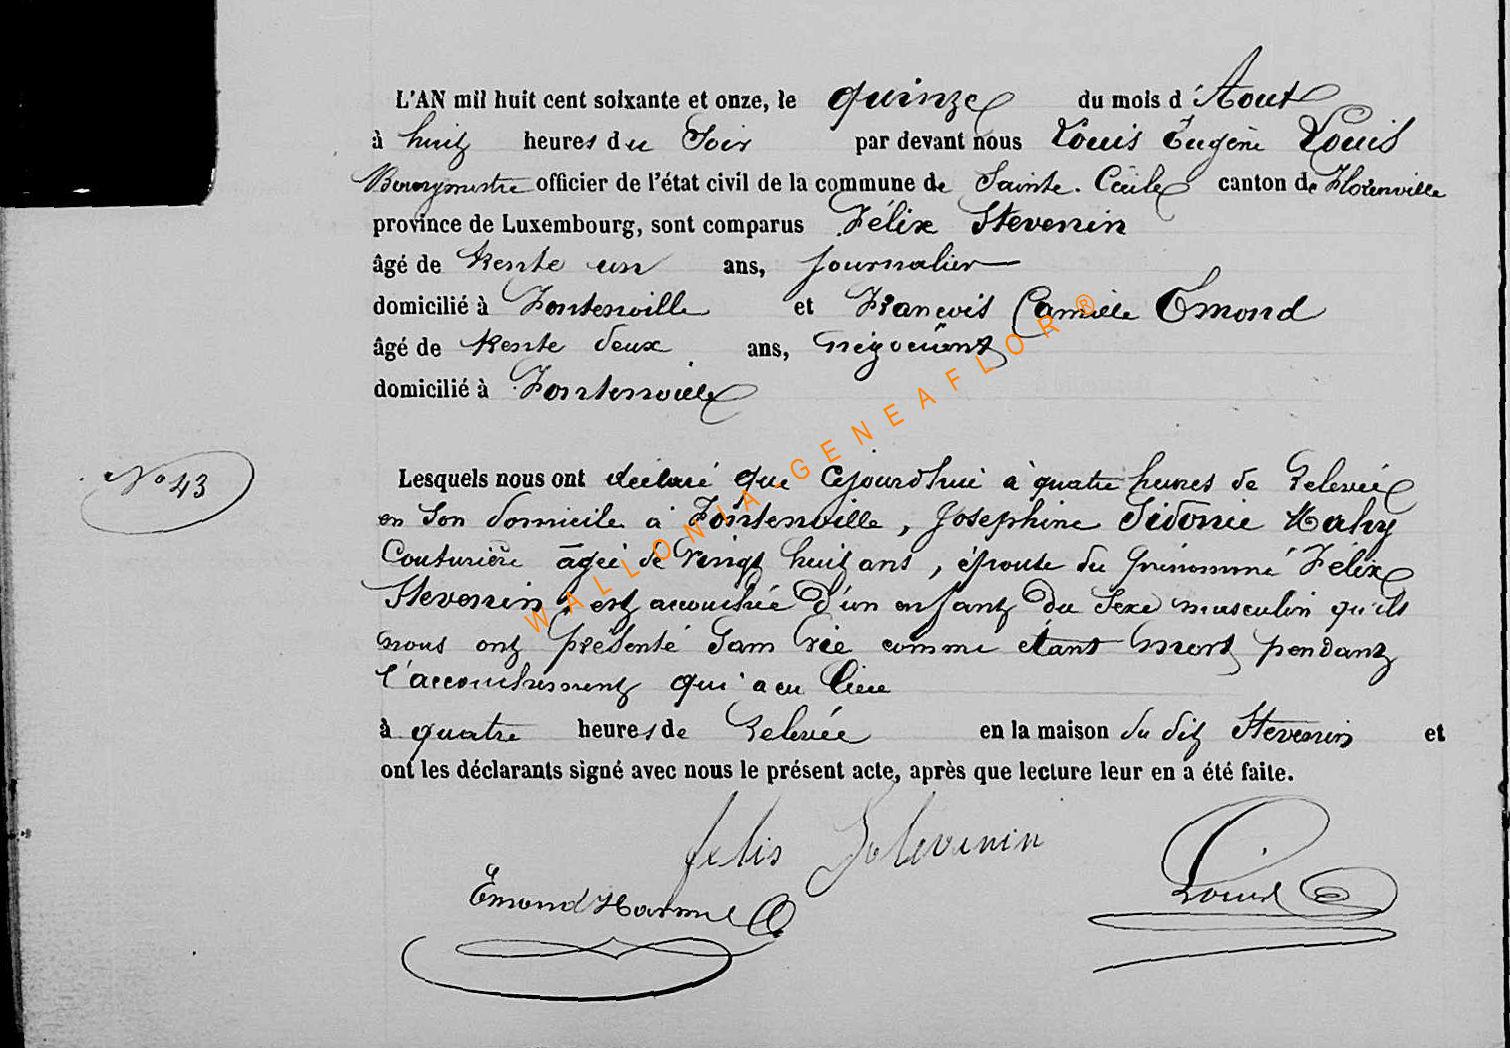 L'AN mil huit cent soixante et onze, le quinze du mois d'Aout
à huit heures du Soir par devant nous Louis Eugène Louis
Bourgmestre officier de l'état civil de la commune de Sainte-Cécile canton de Florenville
province de Luxembourg, sont comparus Félix Stevenin
âgé de trente un ans, journalier
domicilié à Fontenoille et François Camille Emond
âgé de trente deux ans, négociant
domicilié à Fontenoille
N° 43
Lesquels nous ont déclaré que cejourd'hui à quatre heures de Relevée
en son domicile à Fontenoille, Joséphine Sidonie Mahy
Couturière âgée de vingt huit ans, épouse du prénommé Félix
Stevenin, est accouchée d'un enfant du Sexe masculin qu'ils
nous ont présenté sans vie comme étant mort pendant
l'accouchement qui a eu lieu
à quatre heures de Relevée en la maison du dit Stevenin et
ont les déclarants signé avec nous le présent acte, après que lecture leur en a été faite.
felix Stevenin
Emond Louis
WALLONIA-GENEAFLOR®